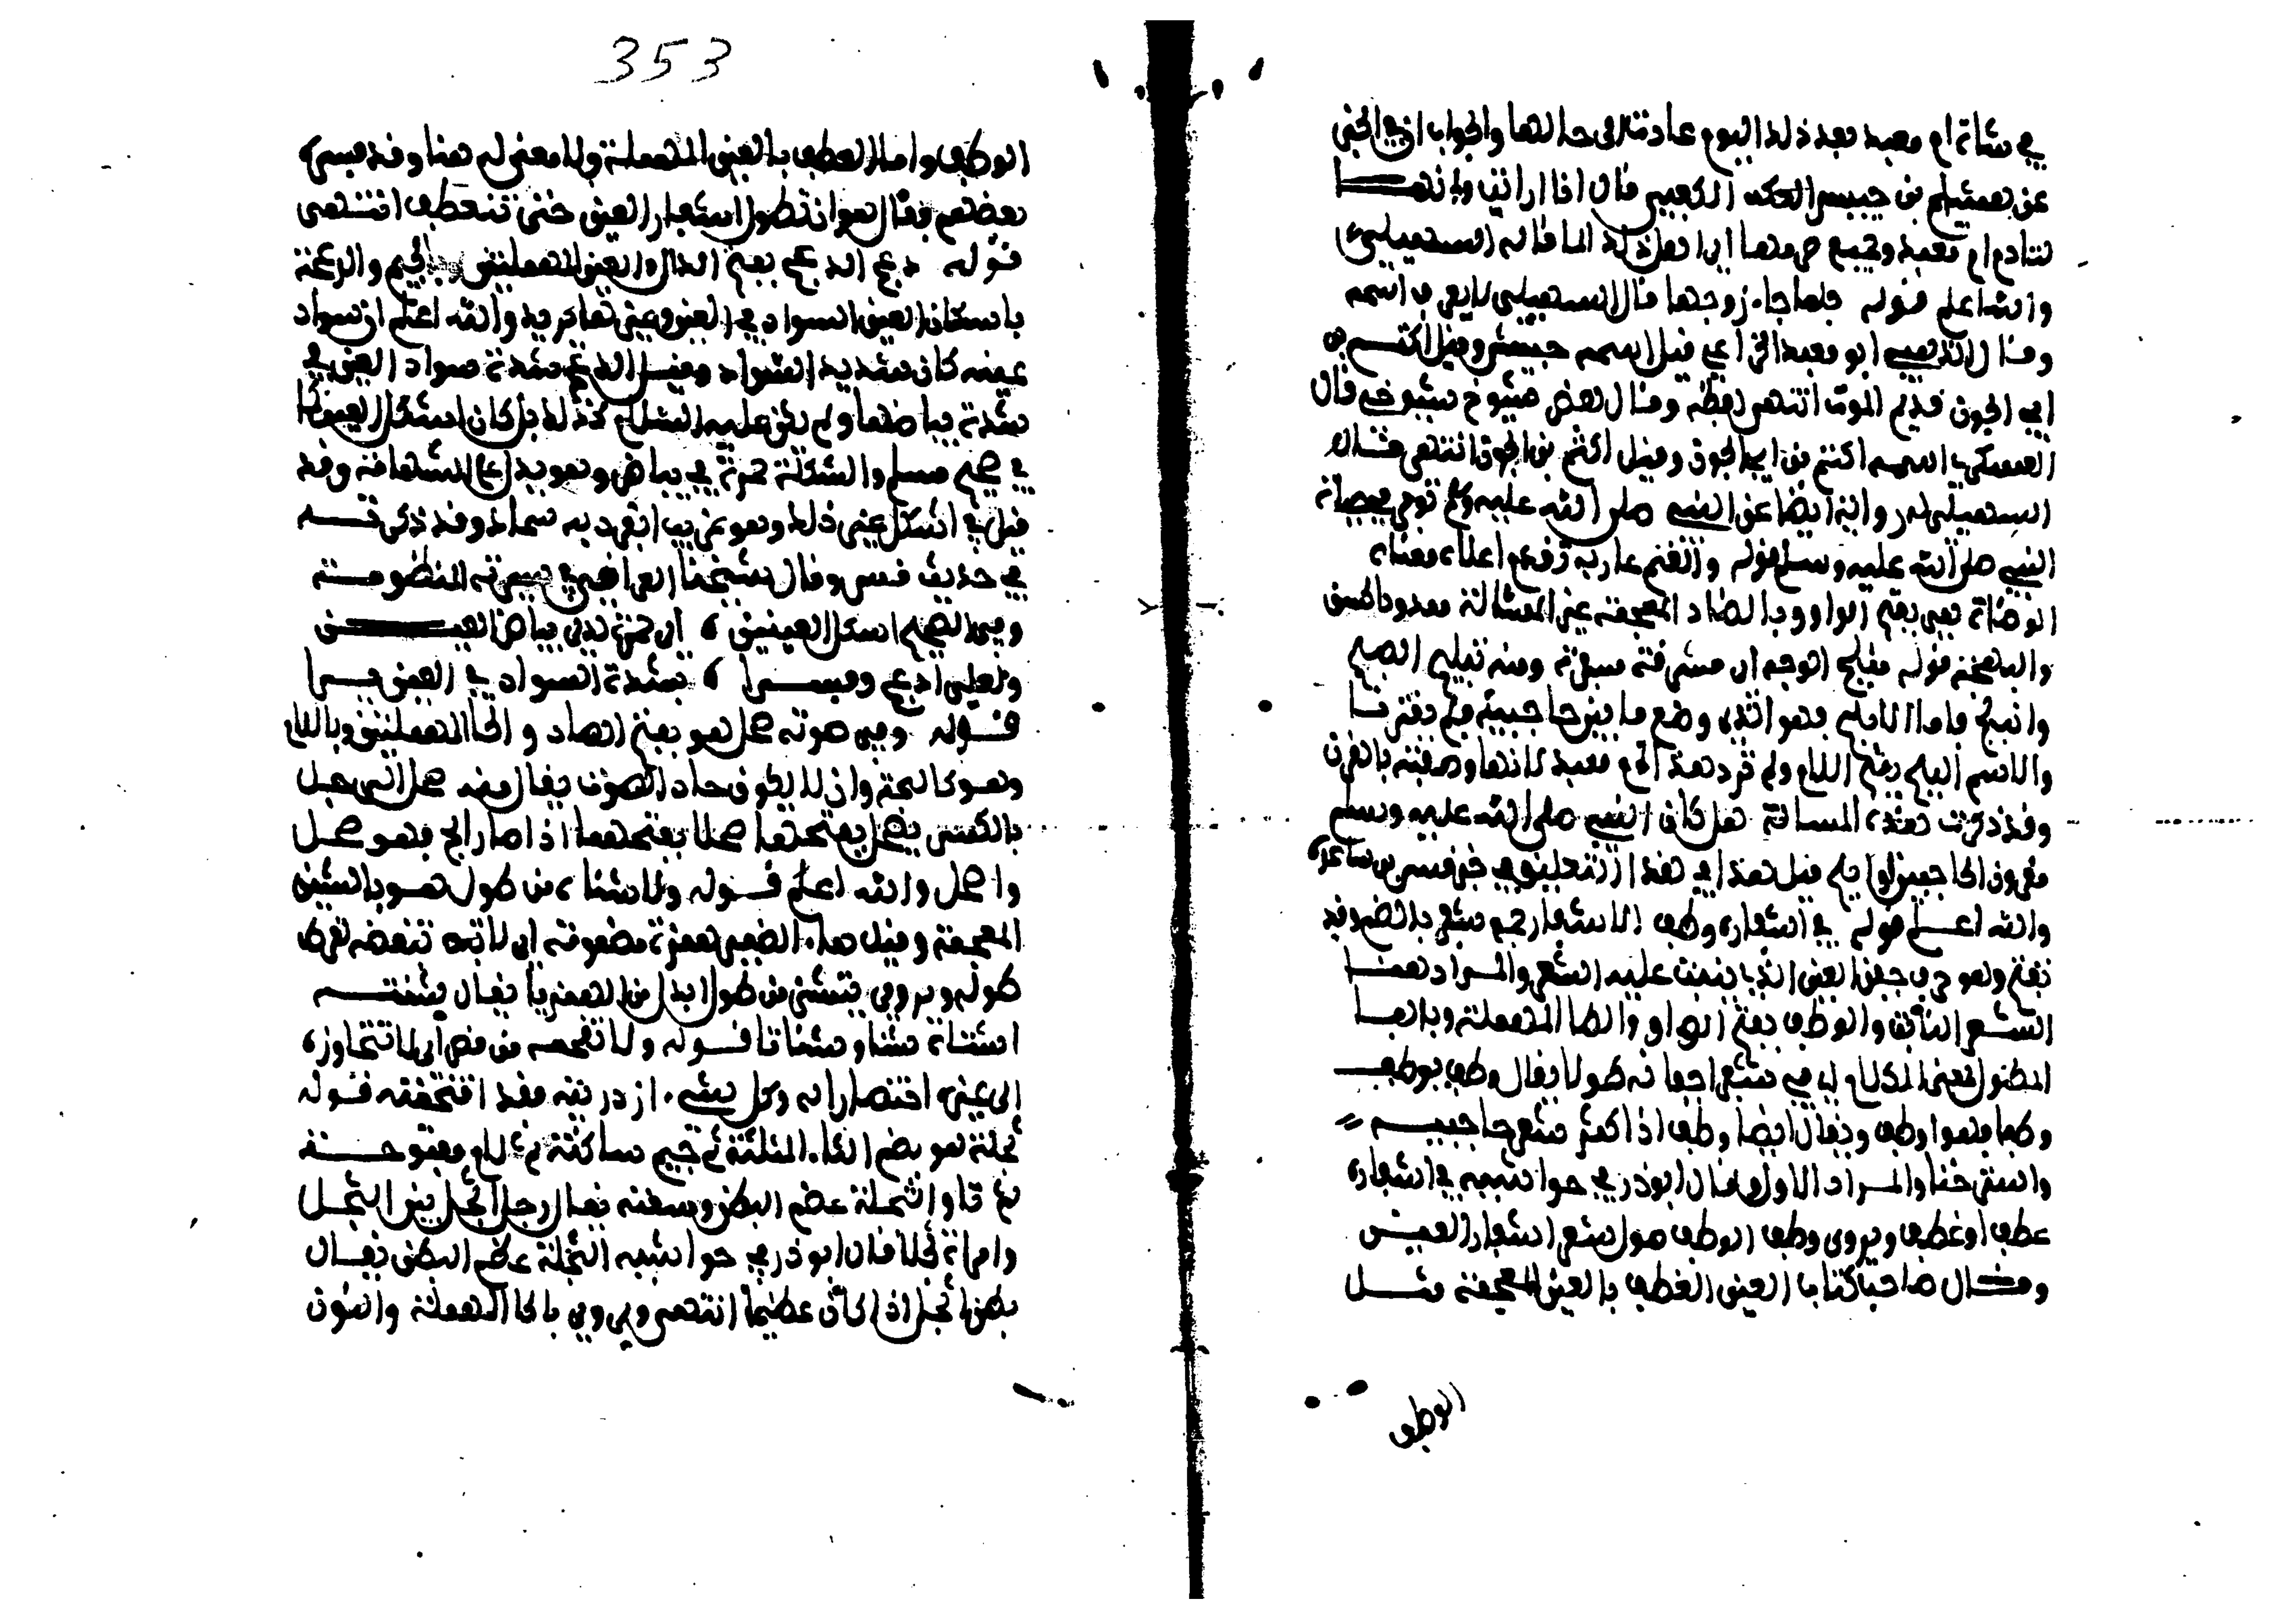 في شاة ام معبد بعد ذلك اليوم عادت الى حالتها والجواب ان في الخبر
عن هشام بن حبيش الكعبي قال انا رايتها وانها
لتادم ام معبد وجميع صرمها اي اهل ذلك الما قاله السهيلي
والله اعلم قوله جاء زوجها قال السهيلي لا يعرف اسمه
وقال الذهبي ابو معبد الخزاعي قيل اسمه حبيش وقيل اكثم بن
ابي الجون قديم الموت انتهى لفظه وقال بعض شيوخ شيوخي قال
العسكري اسمه اكثم بن ابي الجون وقيل اكثم بن الجون انتهى قال
السهيلي له رواية ايضا عن النبي صلى الله عليه وسلم توفي في حياة
النبي صلى الله عليه وسلم قوله والغنم عازبة
الوضاة هي بفتح الواو وبالضاد المعجمة غير المشالة ممدود الحسن
والبهجة قوله مبلج الوجه اي مشرقة مسفرة ومنه تبلج الصبح
وانبلج فاما الابلج فهو الذي وضح ما بين حاجبيه فلم يقترنا
والاسم البلج بفتح اللام ولم ترد هذا ام معبد لانها وصفته بالقرن
وقد ذكرت هذه المسالة هل كان النبي صلى الله عليه وسلم
مقرون الحاجبين او ابلج قيل هذا في هذا التعليق في خبر قس بن ساعدة
والله اعلم قوله في اشفاره وطف الاشفار جمع شفر بالضم وقد
تفتح وهو حرف جفن العين الذي ينبت عليه الشعر والمراد هنا
الشعر النابت والوطف بفتح الواو والطا المهملة وبالفا
الطول يعني الكلام اي في شعر اجفانه طولا يقال وطف يوطف
وطفا فهو اوطف ويقال ايضا وطف اذا كثر شعر حاجبيه
واسترخيا والمراد الاول وقال ابو ذر في حواشيه في اشفاره
عطف او غطف ويروى وطف الوطف طول شعر اشفار العين
وقال صاحب كتاب العين الغطف بالغين المعجمة مثل
الوطف
353
الوطف واما العطف بالعين المهملة فلا معنى له هنا وقد فسره
بعضهم فقال هو ان تطول اشفار العين حتى تنعطف انتهى
قوله دعج الدعج بفتح الدال والعين المهملتين وبالجيم والدعجة
باسكان العين السواد في العين وغيرها يريد والله اعلم ان سواد
عينيه كان شديد السواد وقيل الدعج شدة سواد العين في
شدة بياضها ولم يكن عليه السلام كذلك بل كان اشكل العين كما
في صحيح مسلم والشكلة حمرة في بياض وهو يدل على الشهامة وقد
قيل في اشكل غير ذلك وهو غريب انفرد به سماك وقد ذكرته
في حديث قس وقال شيخنا العراقي في سيرته المنظومة
وفي الصحيح اشكل العينين ، اي حمرة لدى بياض العين
ولعلي ادعج وفسرا ، بشدة السواد في العين يرى
قوله وفي صوته صحل هو بفتح الصاد والحا المهملتين وباللام
وهو كالبحة وان لا يكون حاد الصوت يقال منه صحل الرجل
بالكسر يصحل بفتحها صحلا بفتحهما اذا صار ابح فهو صحل
واصحل والله اعلم قوله ولا يشنا من طول هو بالشين
المعجمة وقبل هاء الضمير همزة مضمومة اي لا تبغضه لفرط
طوله ويروى يتشنى من طول ابدل من الهمزة يا يقال شنئته
اشناه شنا وشنانا قوله ولا تقتحمه من قصر اي لا تتجاوزه
الى غيره احتقارا له وكل شيء ازدريته فقد اقتحمته قوله
ثجلة هو بضم الثاء المثلثة ثم جيم ساكنة ثم لام مفتوحة
ثم تا والثجلة عظم البطن وسعته يقال رجل اثجل بين الثجل
وامراة ثجلا قال ابو ذر في حواشيه الثجلة عظم البطن يقال
بطن اثجل اذا كان عظيما انتهى ويروى بالحا المهملة والنون